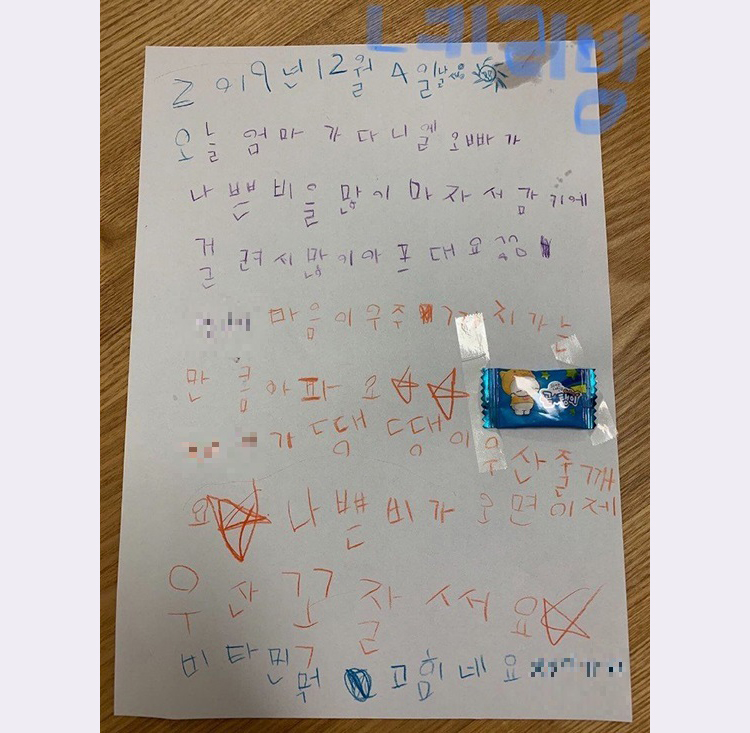 느키리방
2019년 12월 4일 날씨
오늘 엄마가 다니엘 오빠가
나쁜 비을 많이 마자서 감기에
걸려시 많이 아프대요
마음이 우주 까지 가는
만큼 아파요
가 땡땡이 우산 줄깨
요 나쁜 비가 오면 이제
우산 꼬 잘 써요
비타민
고 힘네요